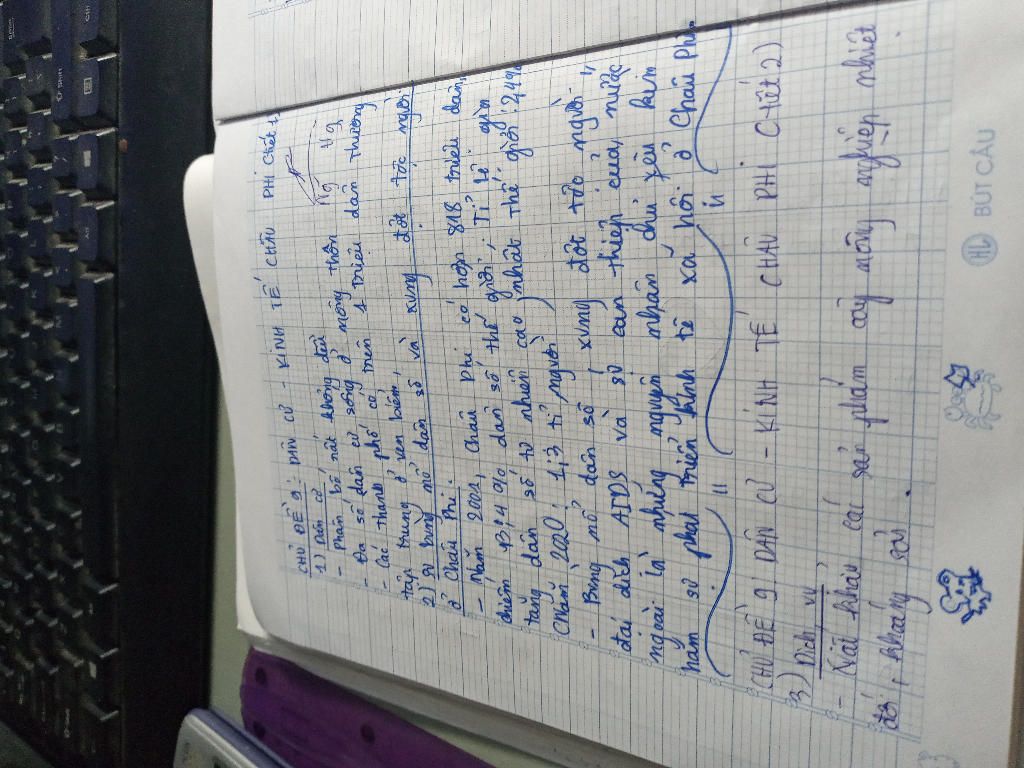 CHỦ ĐỀ 9: DÂN CƯ - KINH TẾ CHÂU PHI (tiết 1)
1) Dân cư
- Phân bố rất không đều
- Đa số dân cư sống ở nông thôn
- Các thành phố có trên 1 triệu dân thường
tập trung ở ven biển.
2) Sự bùng nổ dân số và xung đột tộc người
ở Châu Phi.
- Năm 2001, Châu Phi có hơn 818 triệu dân,
chiếm 13,4% dân số thế giới. Tỉ lệ gia
tăng dân số tự nhiên cao nhất thế giới 2,4%
(năm 2020: 1,3 tỉ người)
- Bùng nổ dân số, xung đột tộc người,
đại dịch AIDS và sự can thiệp của nước
ngoài là những nguyên nhân chủ yếu kìm
hãm sự phát triển kinh tế xã hội ở Châu Phi.
CHỦ ĐỀ 9: DÂN CƯ - KINH TẾ CHÂU PHI (tiết 2)
3) Dịch vụ
- Xuất khẩu các sản phẩm cây nông nghiệp nhiệt
đới, khoáng sản.
HL BÚT CÂU